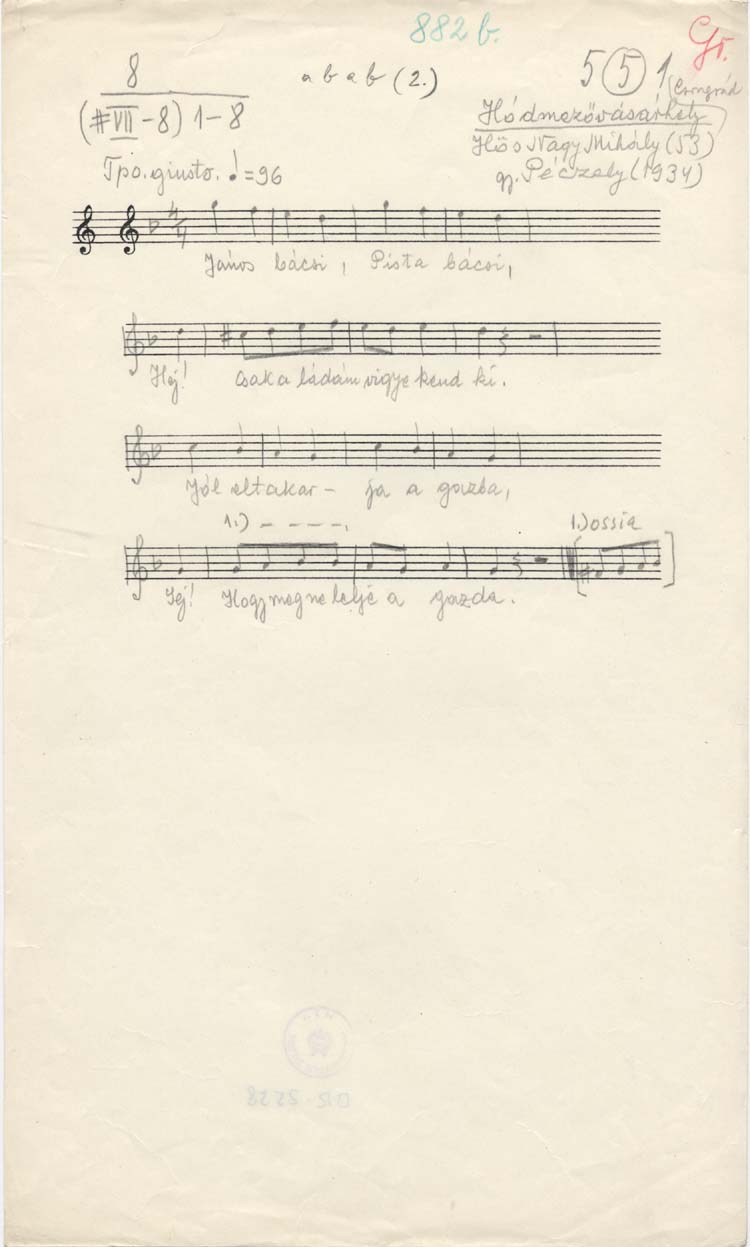 882 b.
Gy.
8
a b a b (2.)
5 (5) 1
(Csongrád)
(#VII-8) 1-8
Hódmezővásárhely
Hős Nagy Mihály (53)
Tpo. giusto. ♩=96
gy. Péczely (1934)
4/4
János bácsi, Pista bácsi,
Hej! Csak a ládám vigye kend ki.
Jól eltakar- ja a gazba,
1.) - - - -,
1.) ossia
Jéj! Hogy meg ne lelje a gazda.